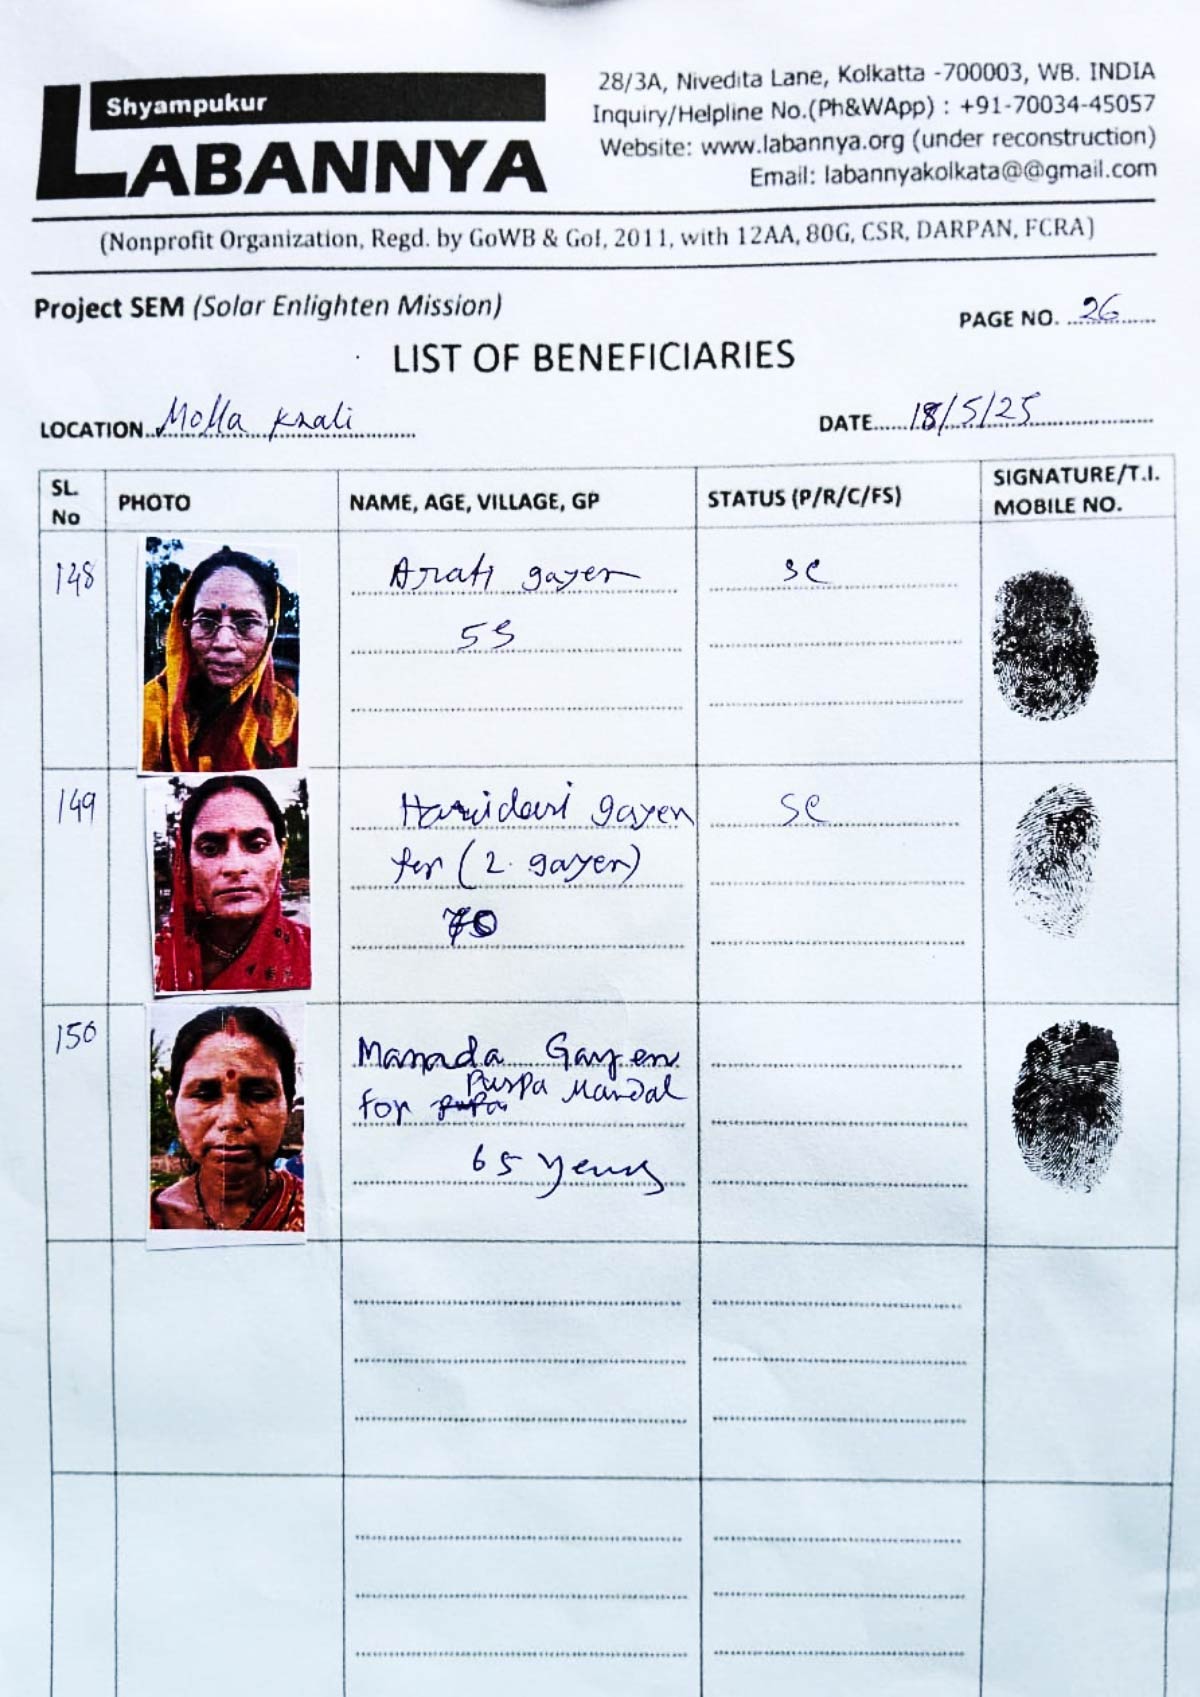 Shyampukur
LABANNYA
28/3A, Nivedita Lane, Kolkatta -700003, WB. INDIA
Inquiry/Helpline No.(Ph&WApp) : +91-70034-45057
Website: www.labannya.org (under reconstruction)
Email: labannyakolkata@@gmail.com
(Nonprofit Organization, Regd. by GoWB & GoI, 2011, with 12AA, 80G, CSR, DARPAN, FCRA)
Project SEM (Solar Enlighten Mission)
PAGE NO. 26
LIST OF BENEFICIARIES
LOCATION Molla Khali
DATE 18/5/25
SL. No
PHOTO
NAME, AGE, VILLAGE, GP
STATUS (P/R/C/FS)
SIGNATURE/T.I. MOBILE NO.
148
Arati gayen
SC
55
149
gayen
SC
for (2. gayen)
70
150
Manada Gayen
for Puspa Mandal
65 years